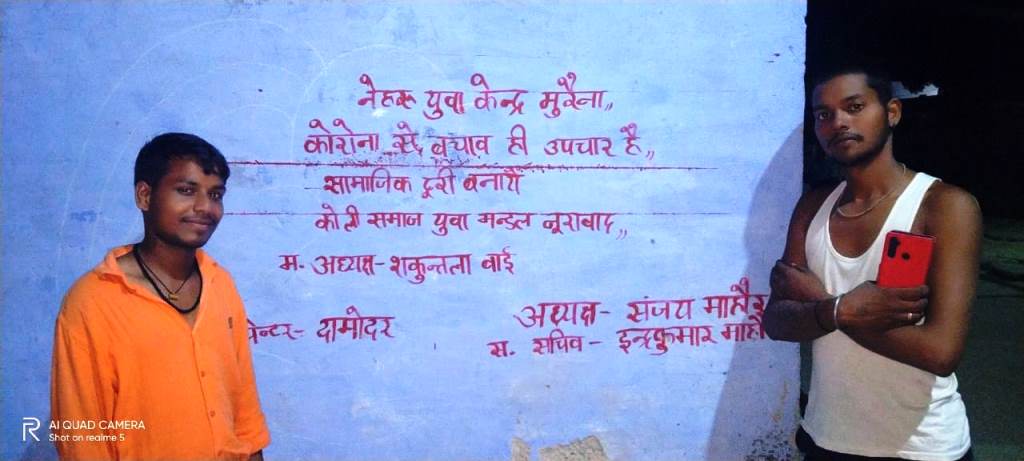 नेहरू युवा केन्द्र मुरैना,,
कोरोना से बचाव ही उपचार है,,
सामाजिक दूरी बनायें
कोली समाज युवा मन्डल नूराबाद,,
म. अध्यक्ष-शकुन्तला बाई
पेन्टर- दामोदर
अध्यक्ष- संजय माहौर
स. सचिव- इन्द्रकुमार
AI QUAD CAMERA
Shot on realme 5